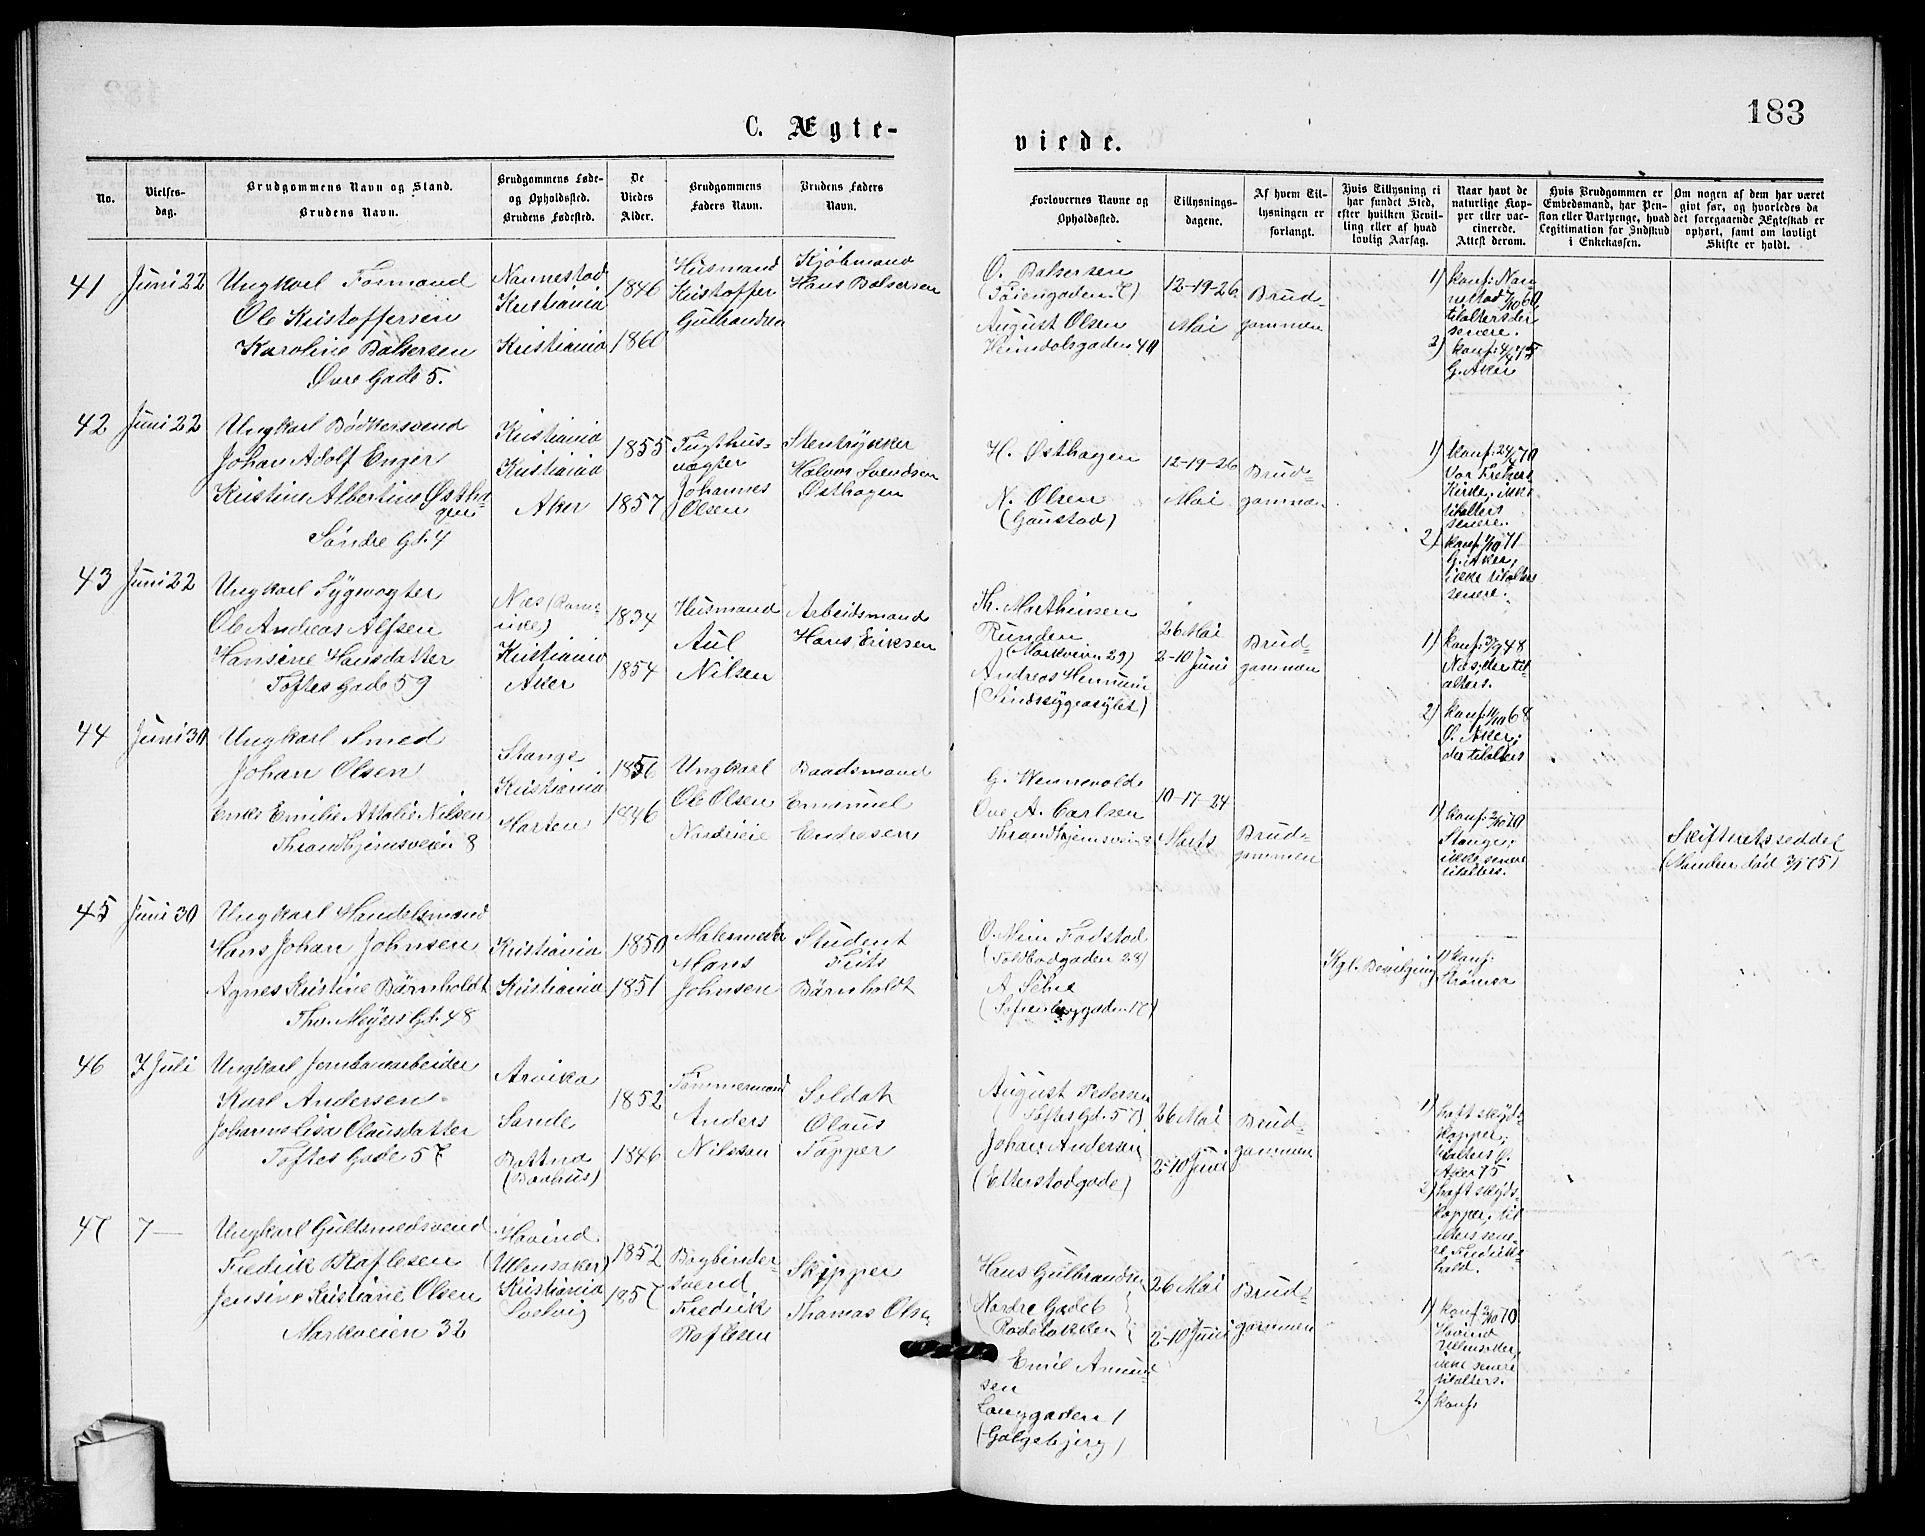 183
C. Ægte-
viede.
No.
Vielses-
dag.
Brudgommens Navn og Stand.
Brudens Navn.
Brudgommens Føde-
og Opholdsted.
Brudens Fødested.
De
Viedes
Alder.
Brudgommens
Faders Navn.
Brudens Faders
Navn.
Forlovernes Navne og
Opholdssted.
Tillysnings-
dagene.
Af hvem Til-
lysningen er
forlangt.
Hvis Tillysning ei
har fundet Sted,
efter hvilken Bevil-
ling eller af hvad
lovlig Aarsag.
Naar havt de
naturlige Kop-
per eller vac-
cinerede.
Attest derom.
Hvis Brudgommen er
Embedsmand, har Pen-
sion eller Vartpenge, hvad
Legitimation for Indskud
i Enkekassen.
Om nogen af dem har været
givt før, og hvorledes da
det foregaaende Ægteskab er
ophørt, samt om lovligt
Skifte er holdt.
41
Juni 22
Ungkarl Formand
Ole Kristoffersen
Karoline Balsersen
Øvre Gade 5.
Nannestad
Kristiania
Kristiania
1846
1860
Husmand
Kristoffer
Gulbrandsen
Kjøbmand
Hans Balsersen
O. Balsersen
(Tøiengaden 7)
August Olsen
Heimdalsgaden 40
12-19-26
Mai
Brud-
gommen
1) konf: Nan-
nestad 7/10 60
senere.
2) konf: 4/4 75
G. Aker
42
Juni 22
Ungkarl Bødkersvend
Johan Adolf Enger
Kristine Albertine Østha-
gen
Søndre Gd. 4
Kristiania
Kristiania
Aker
1855
1857
Tugthus-
vagter
Johannes
Olsen
Stentrykker
Halvor Svendsen
Østhagen
H. Østhagen
N. Olsen
(Gaustad)
12-19-26
Mai
Brud-
gommen
1) konf: 24/4 70
Vor Frelsers
Kirke, ikke
tilalters
senere.
2) konf: 1/10 71
G. Aker,
ikke tilalters
senere.
43
Juni 22
Ungkarl Sygevogter
Ole Andreas Alfsen
Hansine Hansdatter
Toftes Gade 59
Næs (Rome-
rike)
Kristiania
Aker
1834
1854
Husmand
Nilsen
Arbeidsmand
Hans Eriksen
Th. Marthinsen
Runden
(Markveien 29)
Andreas
(Sindssygeasylet)
26 Mai
2-10 Juni
Brud-
gommen
1) konf: 3/9 48
Næs, der til-
alters.
2) konf: 11/10 68
Ø. Aker;
der tilalters
44
Juni 30
Ungkarl Smed
Johan Olsen
Enke Emilie Attalie Nilsen
Throndhjemsveien 8
Stange
Kristiania
Horten
1856
1846
Ungkarl
Ole Olsen
Baadsmand
Emanuel
Ove A. Carlsen
Throndhjemsveien 8
10-17-24
Marts
Brud-
gommen
1) konf: 2/10 70
Stange;
ikke senere
tilalters.
Skifteretsseddel
(Manden død 3/1 75)
45
Juni 30
Ungkarl Handelsmand
Hans Johan Johnsen
Agnes Kristine Bärnholdt
Thv. Meyers Gd. 48
Kristiania
Kristiania
1850
1851
Malermester
Hans
Johnsen
Student
Frits
Bärnholdt
(Toldbodgaden 28)
(Sofienberggaden 17)
Kgl. Bevilgning
1) konf:
Strømsø
46
7 Juli
Ungkarl Jernbanearbeider
Karl Andersen
Johanna Lisa Olausdatter
Toftes Gade 57
Arvika
Sande
(Bohus)
1852
1846
Tømmermand
Anders
Nilssen
Soldat
Olaus
Tapper
August Pedersen
(Toftes Gd. 57)
Johan Andersen
(Etterstadgade)
26 Mai
2-10 Juni
Brud-
gommen
1) haft skyds-
kopper;
tilalters G.
Aker 75
2) haft skyds-
kopper; til-
alters sene-
re Fredriks-
hald.
47
7 —
Ungkarl Guldsmedsvend
Fredrik Roflesen
Jensine Kristiane Olsen
Markveien 32
Hovind
(Ullensaker)
Kristiania
1852
1857
Bogbinder-
svend
Fredrik
Roflesen
Skipper
Thomas Olsen
Hans Gulbrandsen
(Nordre Gade 6
Rodeløkken)
Emil Amund-
sen
Langgaden 1
(Galgebjerg)
26 Mai
2-10 Juni
Brud-
gommen
1) konf: 2/10 70
Hovind
Ullensaker,
ikke senere
tilalters.
2) konf: